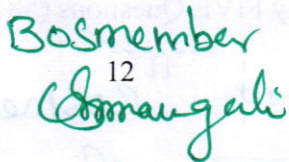 Bosmember
12